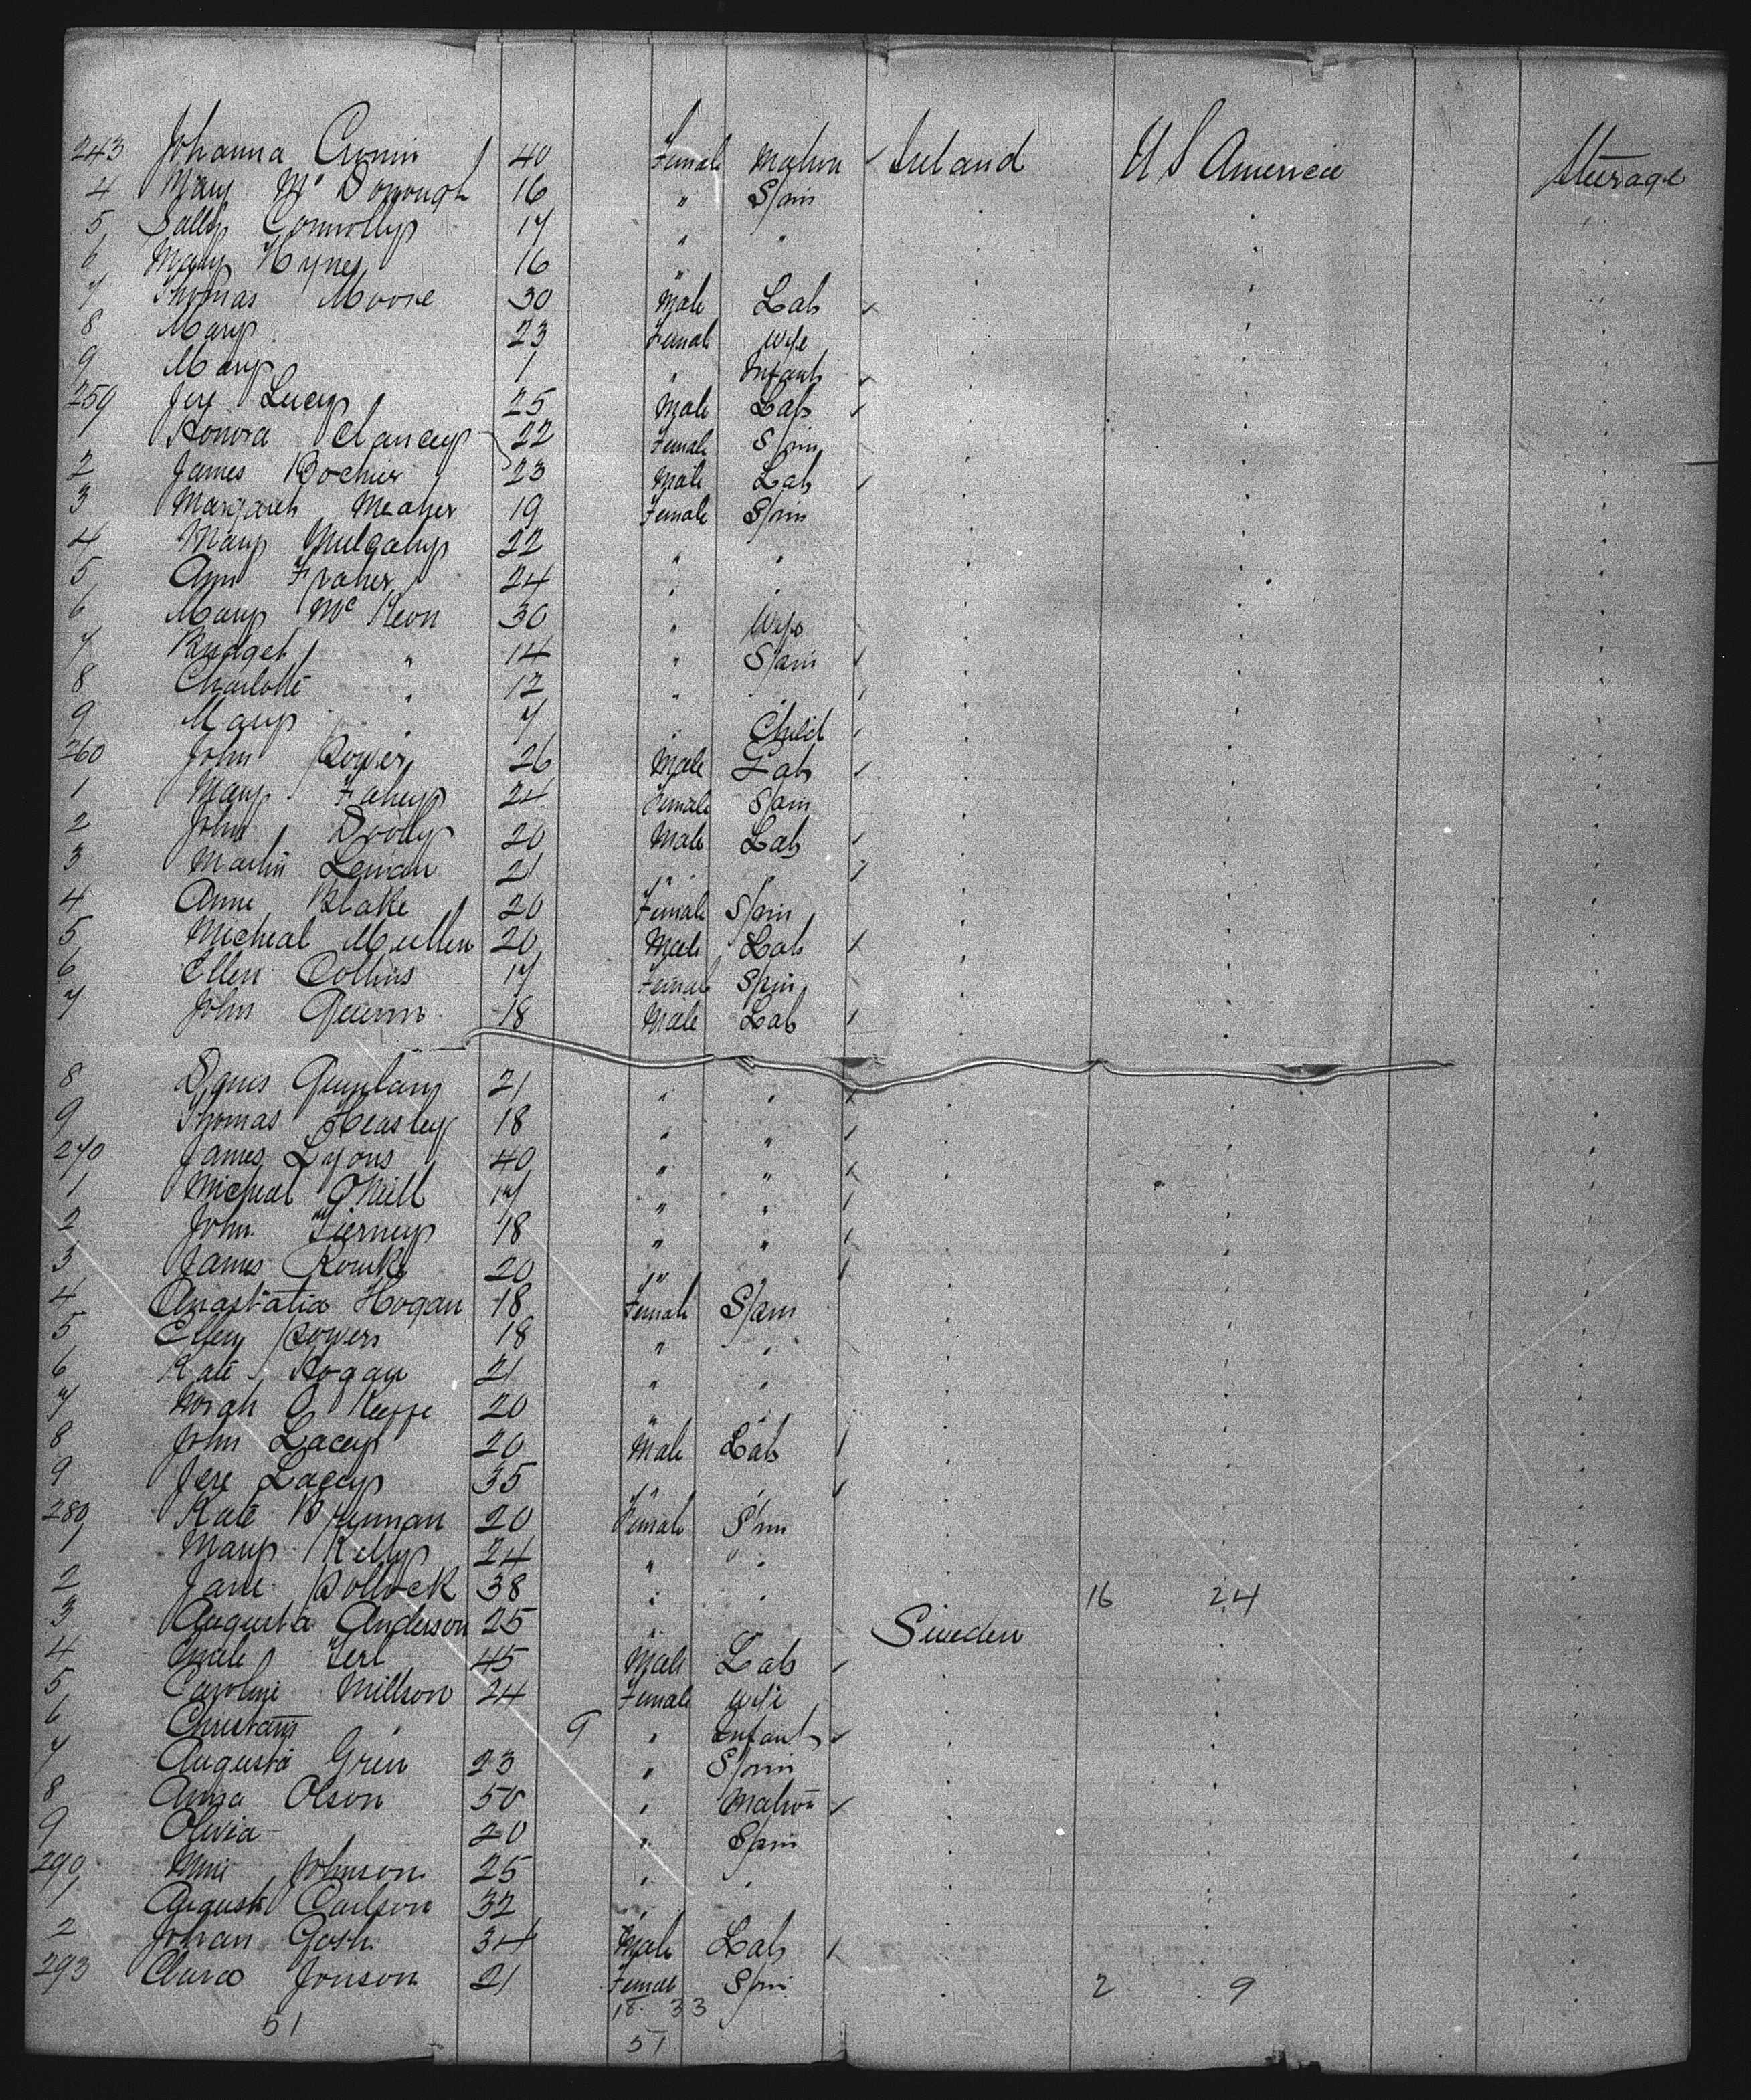 243 Johanna Cronin 40 Female Matron Ireland U S America Steerage
4 Mary Mc Donough 16 " Spin
5 Sally Connolly 17 " "
6 Mary Hynes 16 "
7 Thomas Moore 30 Male Lab
8 Mary 23 Female Wife
9 Mary 1 " Infant
250 Jere Lucey 25 Male Lab
1 Honora Clancey 22 Female Spin
2 James 23 Male Lab
3 Margaret Meaher 19 Female Spin
4 Mary Mulcahy 22 " "
5 Ann Fraher 24 " "
6 Mary Mc Keon 30 " Wife
7 Bridget " 14 " Spin
8 Charlotte " 12 " "
9 Mary " 7 " Child
260 John Power 26 Male Lab
1 Mary Fahey 24 Female Spin
2 John Dooly 20 Male Lab
3 Martin 21 " "
4 Anne Blake 20 Female Spin
5 Micheal Mullen 20 Male Lab
6 Ellen Collins 17 Female Spin
7 John Quinn 18 Male Lab
8 Denis Quinlan 21 " "
9 Thomas Heasley 18 " "
270 James Lyons 40 " "
1 Micheal O'Neill 17 " "
2 John Tierney 18 " "
3 James Rourke 20 " "
4 Anastatia Hogan 18 Female Spin
5 Ellen Powers 18 " "
6 Kate Hogan 21 " "
7 Norah O Keeffe 20 " "
8 John Lacey 20 Male Lab
9 Jere Lacey 35 " "
280 Kate Brennan 20 Female Spin
1 Mary Kelly 24 " "
2 Jane Pollock 38 " " 16 24
3 Augusta Anderson 25 " " Sweden
4 45 Male Lab
5 Caroline Millson 24 Female Wife
6 " 9 " Infant
7 Augusta Grin 23 " Spin
8 Anna Olson 50 " Matron
9 Olivia 20 " Spin
290 Johnson 25 " "
1 August Carlson 32 "
2 Johan Gosh 34 Male Lab
293 Clara Jonson 21 Female Spin 2 9
18 33
51 51